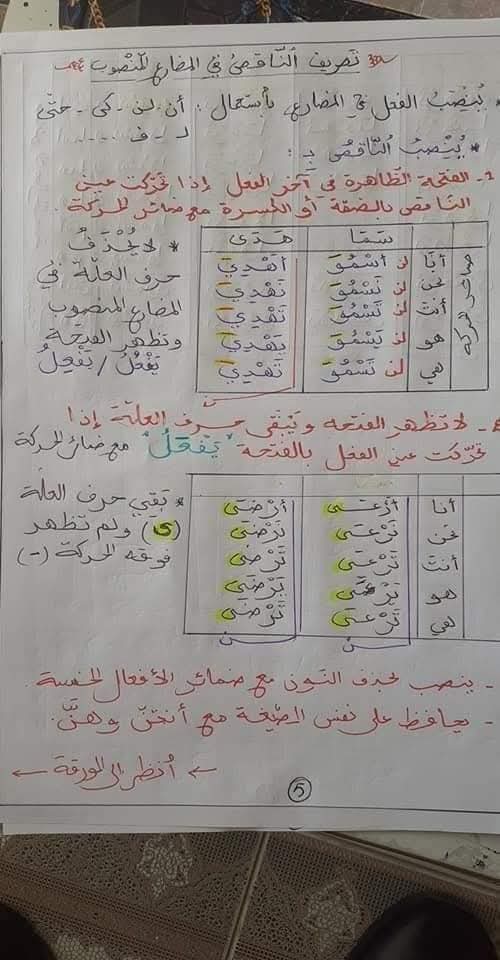 تصريف النَّاقص في المضارع المنصوب
* يُنصَبُ الفعل في المضارع بأستعمال : أن - لن - كي - حتّى
لـ - فـ - ....
* يُنْصَبُ النَّاقصُ بـ :
1- الفتحة الظّاهرة في آخر الفعل إذا تحرّكت عين
النّاقص بالضمّة أو الكسرة مع ضمائر الحركة.
سَمَا هَدَى
ضمائر الحركة
أنَا لن أسْمُوَ أهْدِيَ
نحن لن نَسْمُوَ نَهْدِيَ
أنتَ لن تَسْمُوَ تَهْدِيَ
هو لن يَسْمُوَ يَهْدِيَ
هي لن تَسْمُوَ تَهْدِيَ
لن
* لا يُحْذَفُ
حرف العلّة في
المضارع المنصوب
وتظهر الفتحة
يَفْعُلُ / يَفْعِلُ
2- لا تظهر الفتحة ويَبْقَى حرف العلّة إذا
تحرّكت عين الفعل بالفتحة "يَفْعَلُ" مع ضمائر الحركة
أنا أرْعَى أرْضَى
نحن نَرْعَى نَرْضَى
أنتَ تَرْعَى تَرْضَى
هو يَرْعَى يَرْضَى
هي تَرْعَى تَرْضَى
لن لن
* بقي حرف العلة
(ى) ولم تظهر
فوقه الحركة (-َ)
- ينصب بحذف النون مع ضمائر الأفعال الخمسة
- يحافظ على نفس الصّيغة مع أنتنّ وهنَّ.
← أُنظر إلى الورقة ←
5